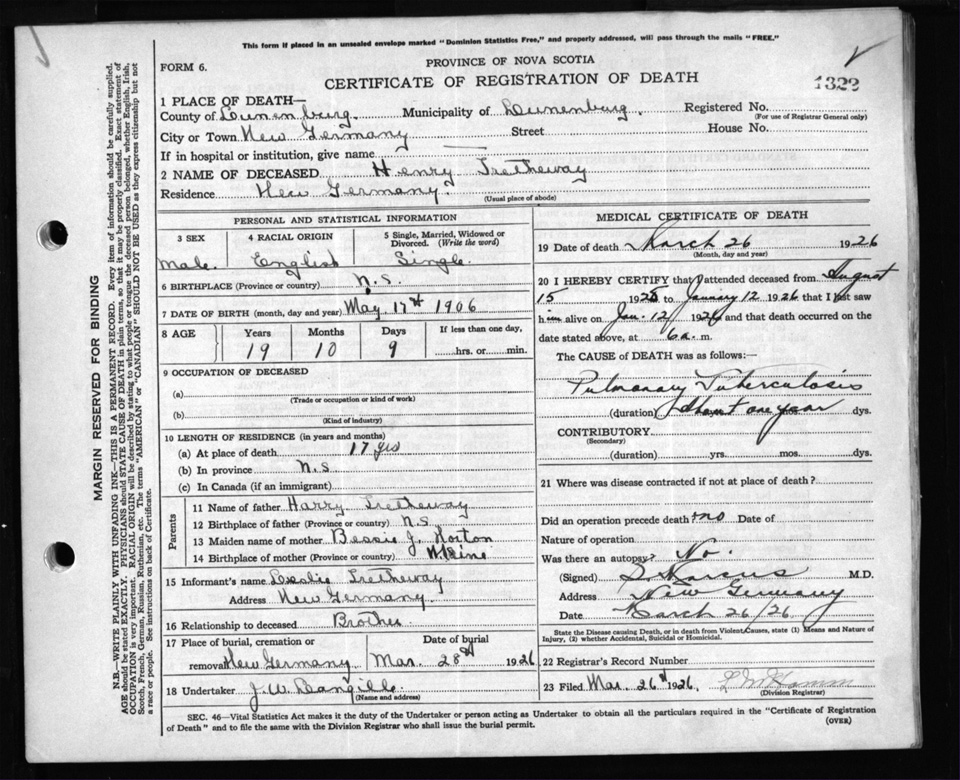 This form if placed in an unsealed envelope marked "Dominion Statistics Free," and properly addressed, will pass through the mails "FREE."
FORM 6.
PROVINCE OF NOVA SCOTIA
CERTIFICATE OF REGISTRATION OF DEATH
1322
1 PLACE OF DEATH—
County of Lunenburg Municipality of Lunenburg. Registered No.
(For use of Registrar General only)
City or Town New Germany Street House No.
If in hospital or institution, give name —
2 NAME OF DECEASED Henry Tretheway
Residence New Germany.
(Usual place of abode)
PERSONAL AND STATISTICAL INFORMATION
3 SEX 4 RACIAL ORIGIN 5 Single, Married, Widowed or Divorced. (Write the word)
Male. English Single.
6 BIRTHPLACE (Province or Country) N.S.
7 DATE OF BIRTH (month, day and year) May 17th 1906
8 AGE Years Months Days If less than one day,
19 10 9 hrs. or min.
9 OCCUPATION OF DECEASED
(a)
(Trade or occupation or kind of work)
(b)
(Kind of industry)
10 LENGTH OF RESIDENCE (in years and months)
(a) At place of death 17 yrs
(b) In province N.S
(c) In Canada (if an immigrant)
Parents
11 Name of father Harry Tretheway
12 Birthplace of father (Province or country) N.S.
13 Maiden name of mother Bessie J. Norton
14 Birthplace of mother (Province or country) Maine
15 Informant's name Leslie Tretheway
Address New Germany.
16 Relationship to deceased Brother
17 Place of burial, cremation or removal New Germany
Date of burial
Mar. 28th 1926
18 Undertaker J. W.
(Name and address)
MEDICAL CERTIFICATE OF DEATH
19 Date of death March 26 1926
(Month, day and year)
20 I HEREBY CERTIFY that I attended deceased from August
15 1925 to January 12 1926 that I last saw
him alive on Jan. 12 1926 and that death occurred on the
date stated above, at 6 a. m.
The CAUSE of DEATH was as follows:—
Pulmonary Tuberculosis
(duration) about one year dys.
CONTRIBUTORY
(Secondary)
(duration) yrs. mos. dys.
21 Where was disease contracted if not at place of death?
Did an operation precede death? no Date of
Nature of operation
Was there an autopsy? No.
(Signed) S. Marcus M.D.
Address New Germany
Date March 26/26
State the Disease causing Death, or in death from Violent Causes, state (1) Means and Nature of
Injury, (2) whether Accidental, Suicidal or Homicidal.
22 Registrar's Record Number
23 Filed Mar. 26th 1926
(Division Registrar)
SEC. 46—Vital Statistics Act makes it the duty of the Undertaker or person acting as Undertaker to obtain all the particulars required in the "Certificate of Registration
of Death" and to file the same with the Division Registrar who shall issue the burial permit.
(OVER)
MARGIN RESERVED FOR BINDING
N.B.—WRITE PLAINLY WITH UNFADING INK—THIS IS A PERMANENT RECORD. Every item of information should be carefully supplied.
AGE should be stated EXACTLY. PHYSICIANS should STATE CAUSE OF DEATH in plain terms, so that it may be properly classified. Exact statement of
OCCUPATION is very important. RACIAL ORIGIN will be described by stating to what people or tongue the deceased person belonged, whether English, Irish,
Scotch, French, German, Russian, Ruthenian, etc. The terms "AMERICAN" or "CANADIAN" SHOULD NOT BE USED as they express citizenship but not
a race or people. See instructions on back of Certificate.